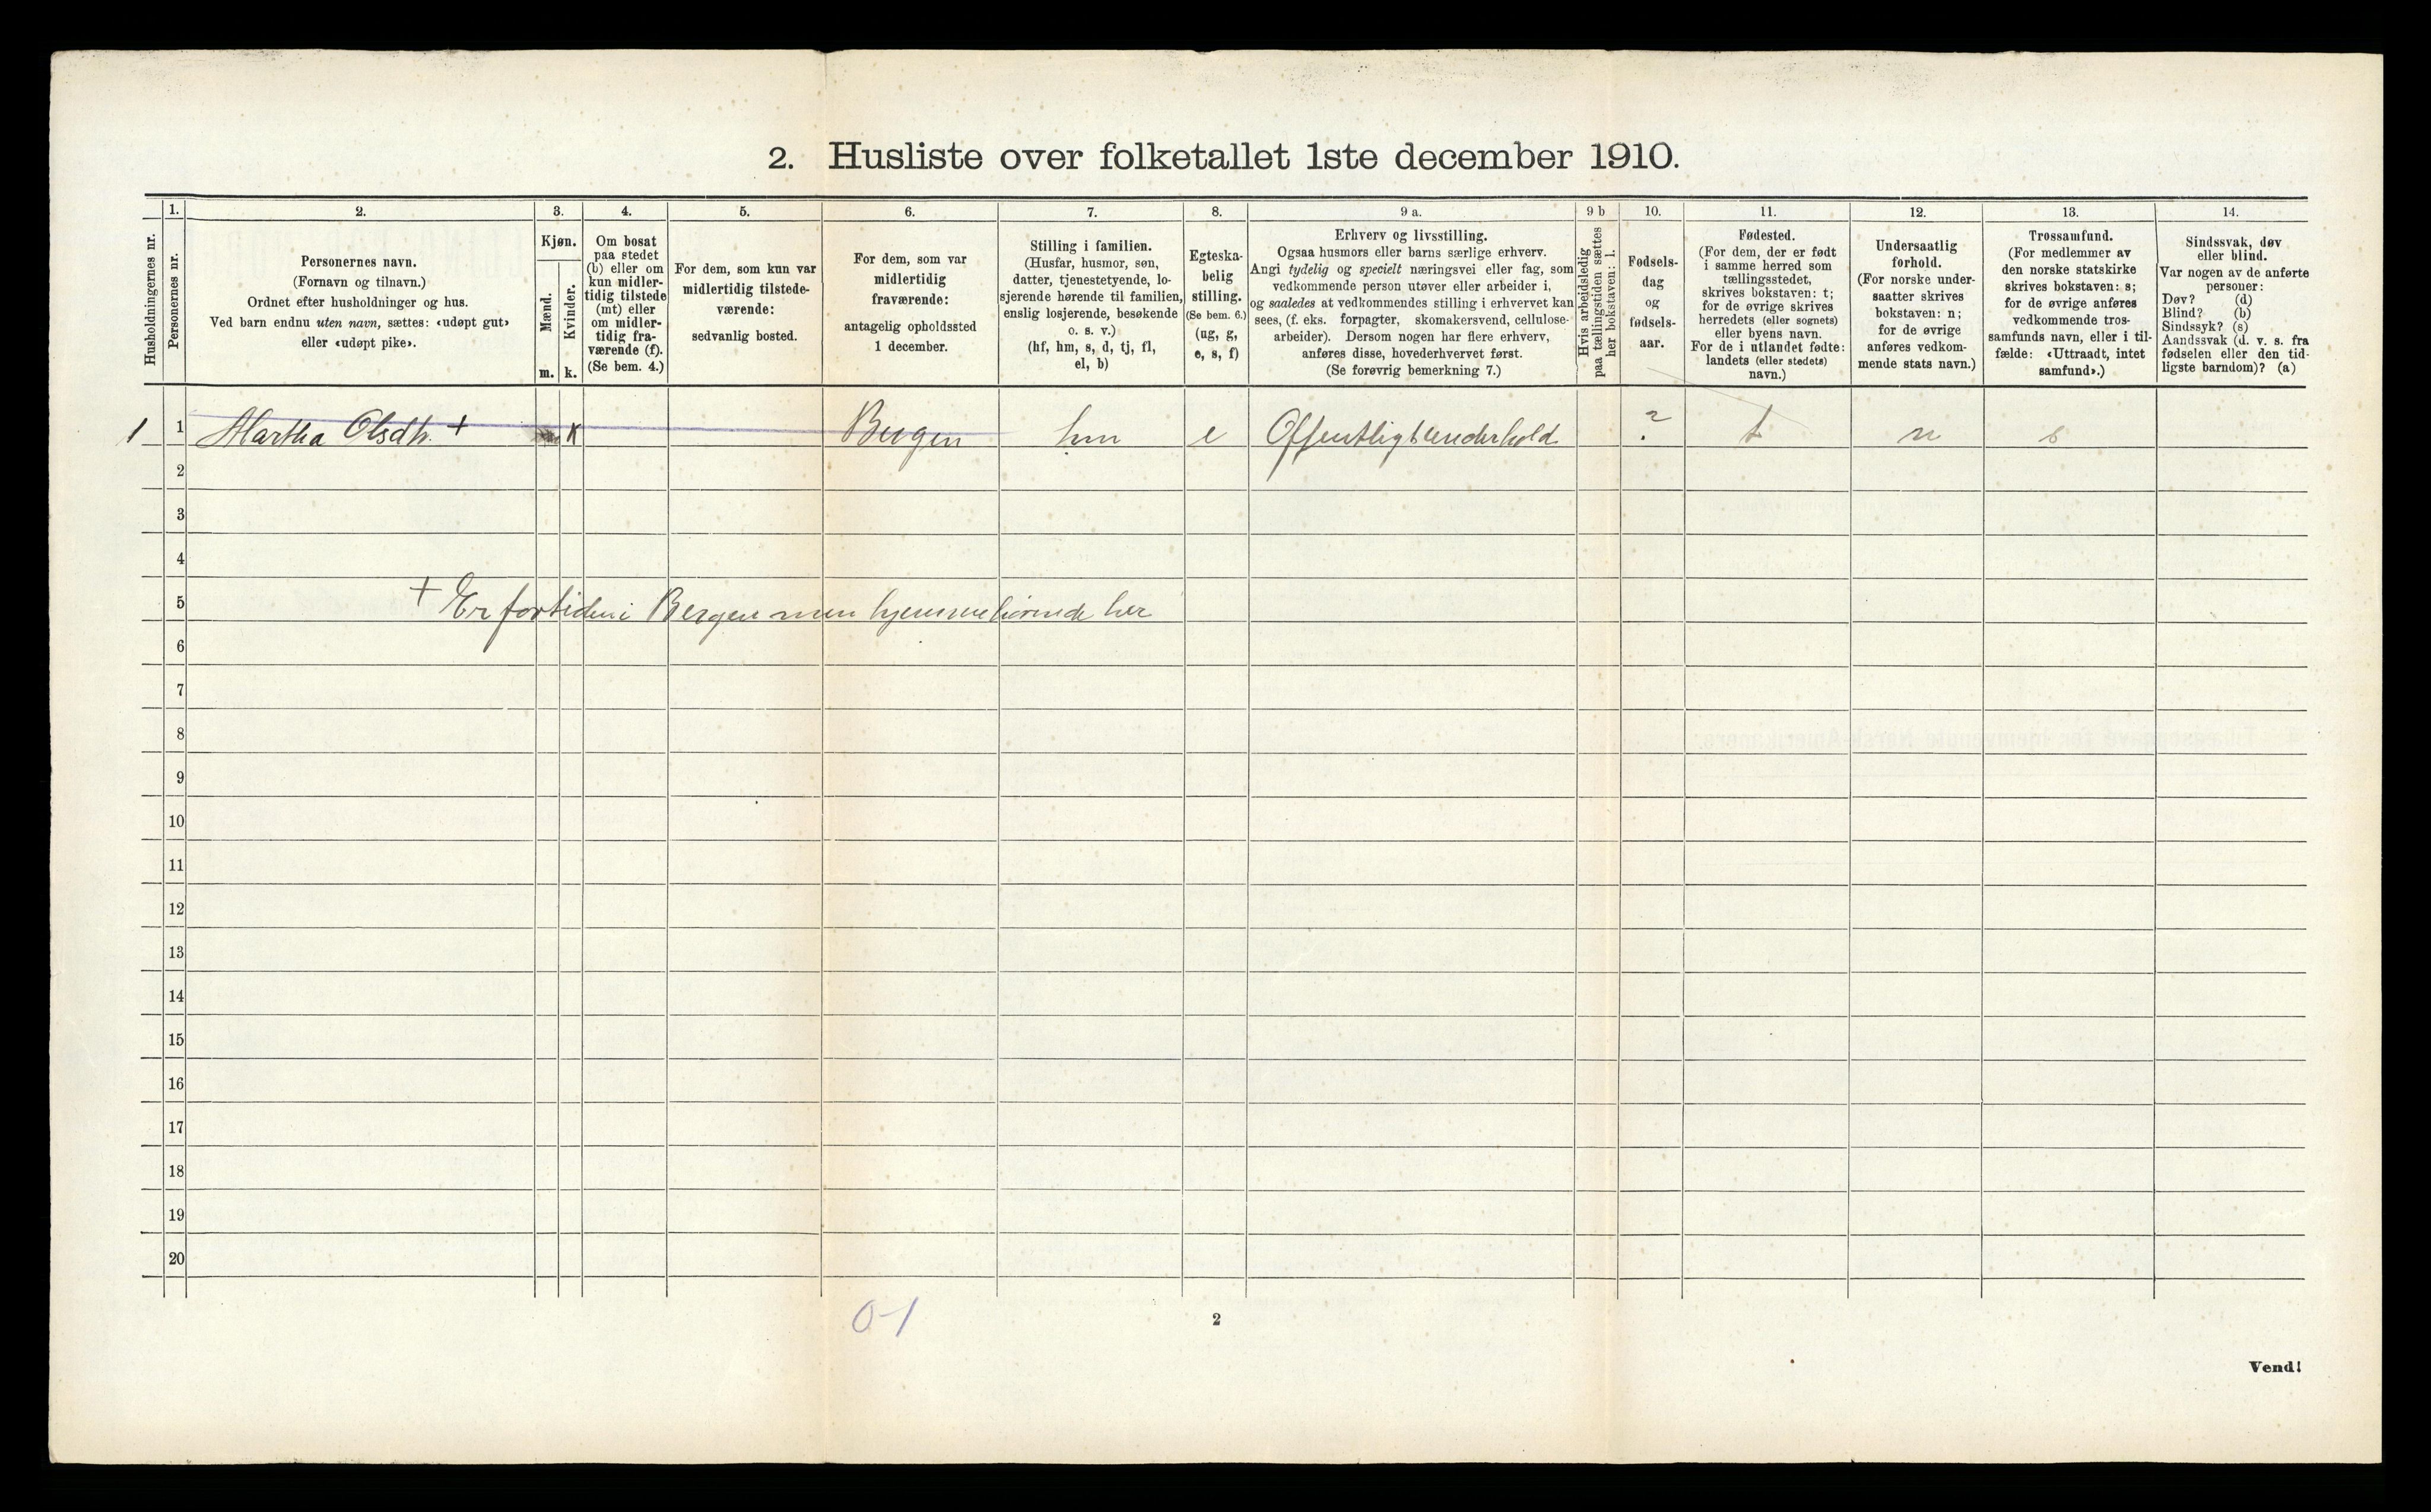 2. Husliste over folketallet 1ste december 1910.
Husholdningernes nr.
1.
Personernes nr.
2.
Personernes navn.
(Fornavn og tilnavn.)
Ordnet efter husholdninger og hus.
Ved barn endnu uten navn, sættes: «udøpt gut»
eller «udøpt pike».
3.
Kjøn.
Mænd.
Kvinder.
m. k.
4.
Om bosat
paa stedet
(b) eller om
kun midler-
tidig tilstede
(mt) eller
om midler-
tidig fra-
værende (f).
(Se bem. 4.)
5.
For dem, som kun var
midlertidig tilstede-
værende:
sedvanlig bosted.
6.
For dem, som var
midlertidig
fraværende:
antagelig opholdssted
1 december.
7.
Stilling i familien.
(Husfar, husmor, søn,
datter, tjenestetyende, lo-
sjerende hørende til familien,
enslig losjerende, besøkende
o. s. v.)
(hf, hm, s, d, tj, fl,
el, b)
8.
Egteska-
belig
stilling.
(Se bem. 6.)
(ug, g,
e, s, f)
9 a.
Erhverv og livsstilling.
Ogsaa husmors eller barns særlige erhverv.
Angi tydelig og specielt næringsvei eller fag, som
vedkommende person utøver eller arbeider i,
og saaledes at vedkommendes stilling i erhvervet kan
sees, (f. eks. forpagter, skomakersvend, cellulose-
arbeider). Dersom nogen har flere erhverv,
anføres disse, hovederhvervet først.
(Se forøvrig bemerkning 7.)
9 b
Hvis arbeidsledig
paa tællingstiden sættes
her bokstaven: l.
10.
Fødsels-
dag
og
fødsels-
aar.
11.
Fødested.
(For dem, der er født
i samme herred som
tællingsstedet,
skrives bokstaven: t;
for de øvrige skrives
herredets (eller sognets)
eller byens navn.
For de i utlandet fødte:
landets (eller stedets)
navn.)
12.
Undersaatlig
forhold.
(For norske under-
saatter skrives
bokstaven: n;
for de øvrige
anføres vedkom-
mende stats navn.)
13.
Trossamfund.
(For medlemmer av
den norske statskirke
skrives bokstaven: s;
for de øvrige anføres
vedkommende tros-
samfunds navn, eller i til-
fælde: «Uttraadt, intet
samfund».)
14.
Sindssvak, døv
eller blind.
Var nogen av de anførte
personer:
Døv? (d)
Blind? (b)
Sindssyk? (s)
Aandssvak (d. v. s. fra
fødselen eller den tid-
ligste barndom)? (a)
1 1 Martha Olsdtr. + k Bergen hm e Offentligt underhold ? t n s
2
3
4
5 + Er fortiden i Bergen men hjemmehörende her
6
7
8
9
10
11
12
13
14
15
16
17
18
19
20
0-1
2
Vend!